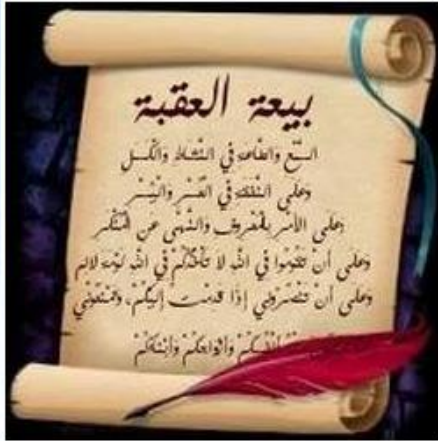 بيعة العقبة
السمع والطاعة في النشاط والكسل
وعلى النفقة في العسر واليسر
وعلى الأمر بالمعروف والنهي عن المنكر
وعلى أن تقوموا في الله لا تأخذكم في الله لومة لائم
وعلى أن تنصروني إذا قدمت إليكم، وتمنعوني
وأزواجكم وأبنائكم